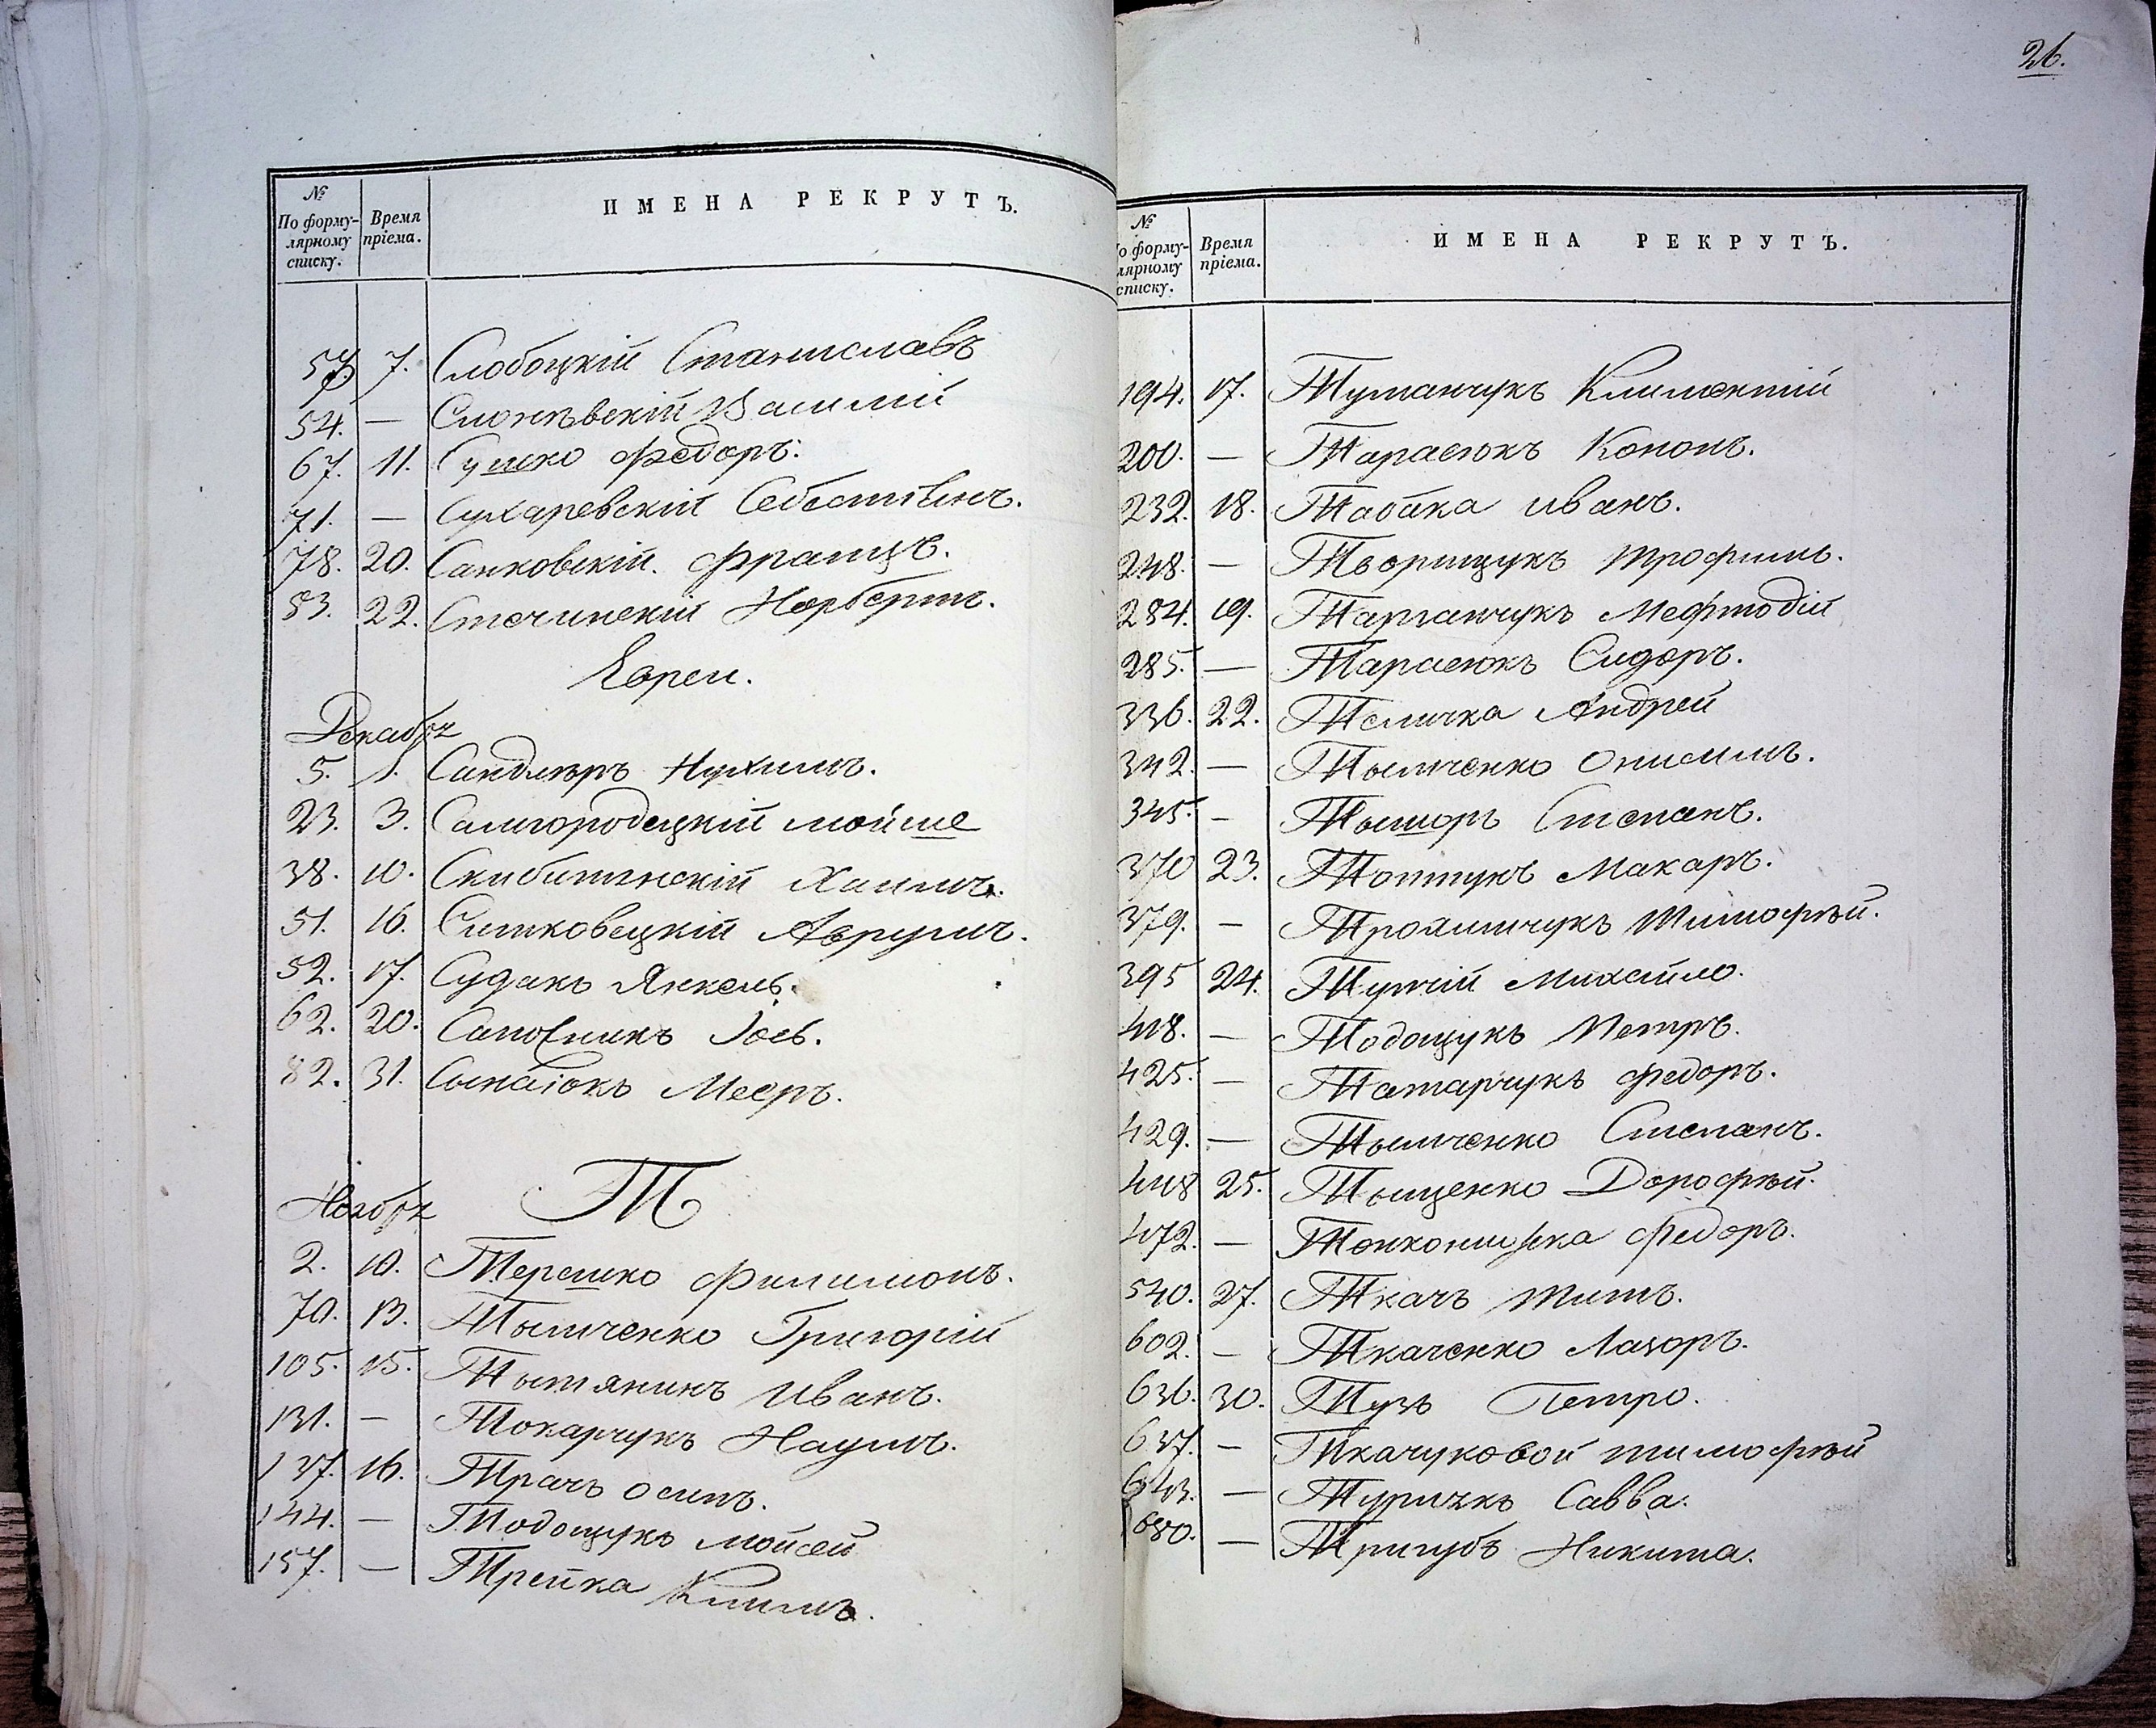 №
По форму-
лярному
списку.
Время
пріема.
ИМЕНА РЕКРУТЪ.
57. 7. Слобоцкій Станиславъ
54. — Слонѣвскій Василій
67. 11. Сушко Федоръ.
71. — Сухаревскій Себестіянъ.
78. 20. Санковскій Францъ.
83. 22. Стечинскій Норбертъ.
Евреи.
Декабрь
5. 1. Сандлѣръ Нухимъ.
23. 3. Самгородецкій Мойше
38. 10. Скибитинскій Хаимъ.
51. 16. Ситковецкій Аврумъ.
52. 17. Судакъ Янкель.
62. 20. Сапожникъ Іось.
82. 31. Сынаюкъ Мееръ.
Т
Ноябрь
2. 10. Терешко Филимонъ.
70. 13. Тымченко Григорій
105. 15. Тытянинъ Иванъ.
131. — Токарчукъ Наумъ.
137. 16. Трачъ Осипъ.
144. — Тодощукъ Мойсей
157. — Трейка Климъ.
26.
№
По форму-
лярному
списку.
Время
пріема.
ИМЕНА РЕКРУТЪ.
194. 17. Туманчукъ Климентій
200. — Тарасюкъ Кононъ.
232. 18. Табака Иванъ.
248. — Творищукъ Трофимъ.
284. 19. Тарганчукъ Мефтодій
285. — Тарасюкъ Сидоръ.
336. 22. Теличка Андрей
342. — Тымченко Онисимъ.
345. — Тышоръ Степанъ.
370 23. Топтунъ Макаръ.
379. — Троямчукъ Тимофѣй.
395 24. Тупчій Михайло.
418. — Тодощукъ Петръ.
425. — Татарчукъ Федоръ.
429. — Тымченко Степанъ.
448 25. Тыщенко Дорофѣй.
472. — Тонконожка Федоръ.
540. 27. Ткачъ Титъ.
602. — Ткаченко Лазоръ.
636. 30. Тузъ Петро.
637. — Ткачуковой Тимофѣй
643. — Туричкъ Савва.
680. — Тригубъ Никита.